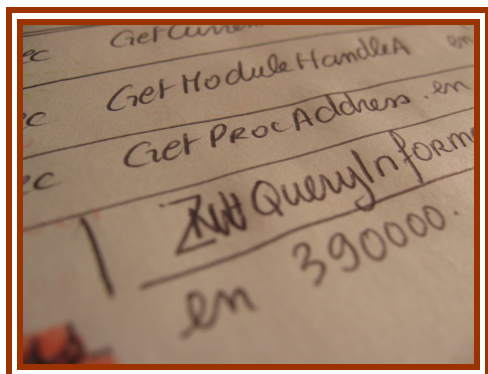 ec GetCurren
ec GetModuleHandleA en
ec GetProcAddress . en
QueryInforma
en 390000.